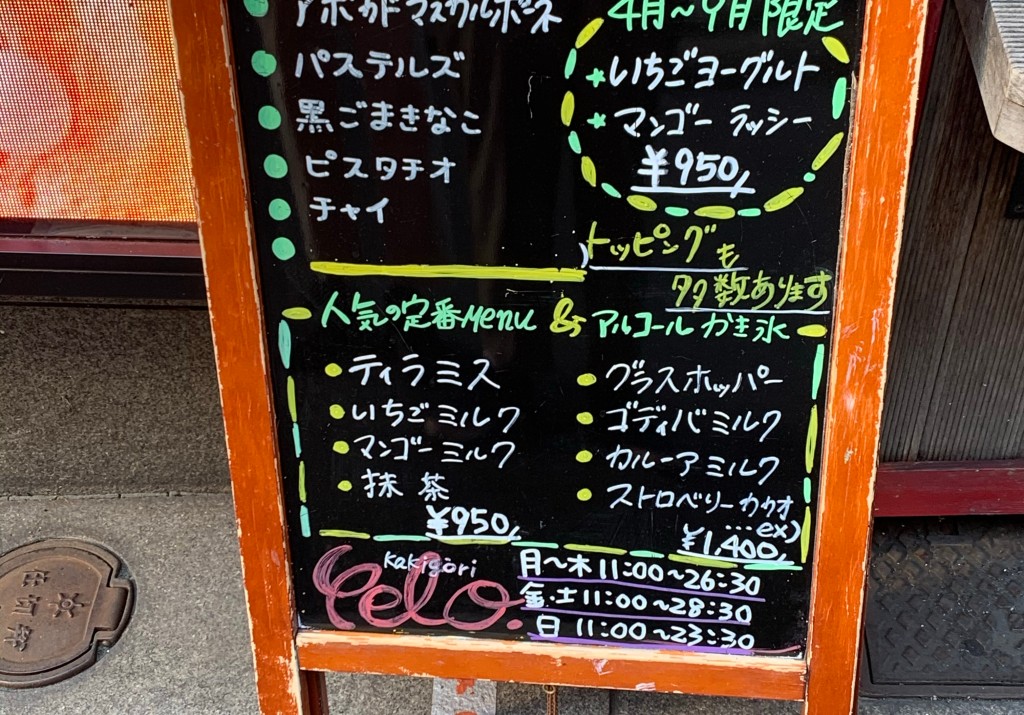 アボカドマスカルポーネ
パステルズ
黒ごまきなこ
ピスタチオ
チャイ
4月～9月限定
いちごヨーグルト
マンゴーラッシー
¥950
トッピングも
多数あります
人気の定番Menu & アルコールかき氷
ティラミス
いちごミルク
マンゴーミルク
抹茶
¥950
グラスホッパー
ゴディバミルク
カルーアミルク
ストロベリーカカオ
...ex)
¥1,400
Kakigōri
Yelo.
月～木 11:00～26:30
金・土 11:00～28:30
日 11:00～23:30